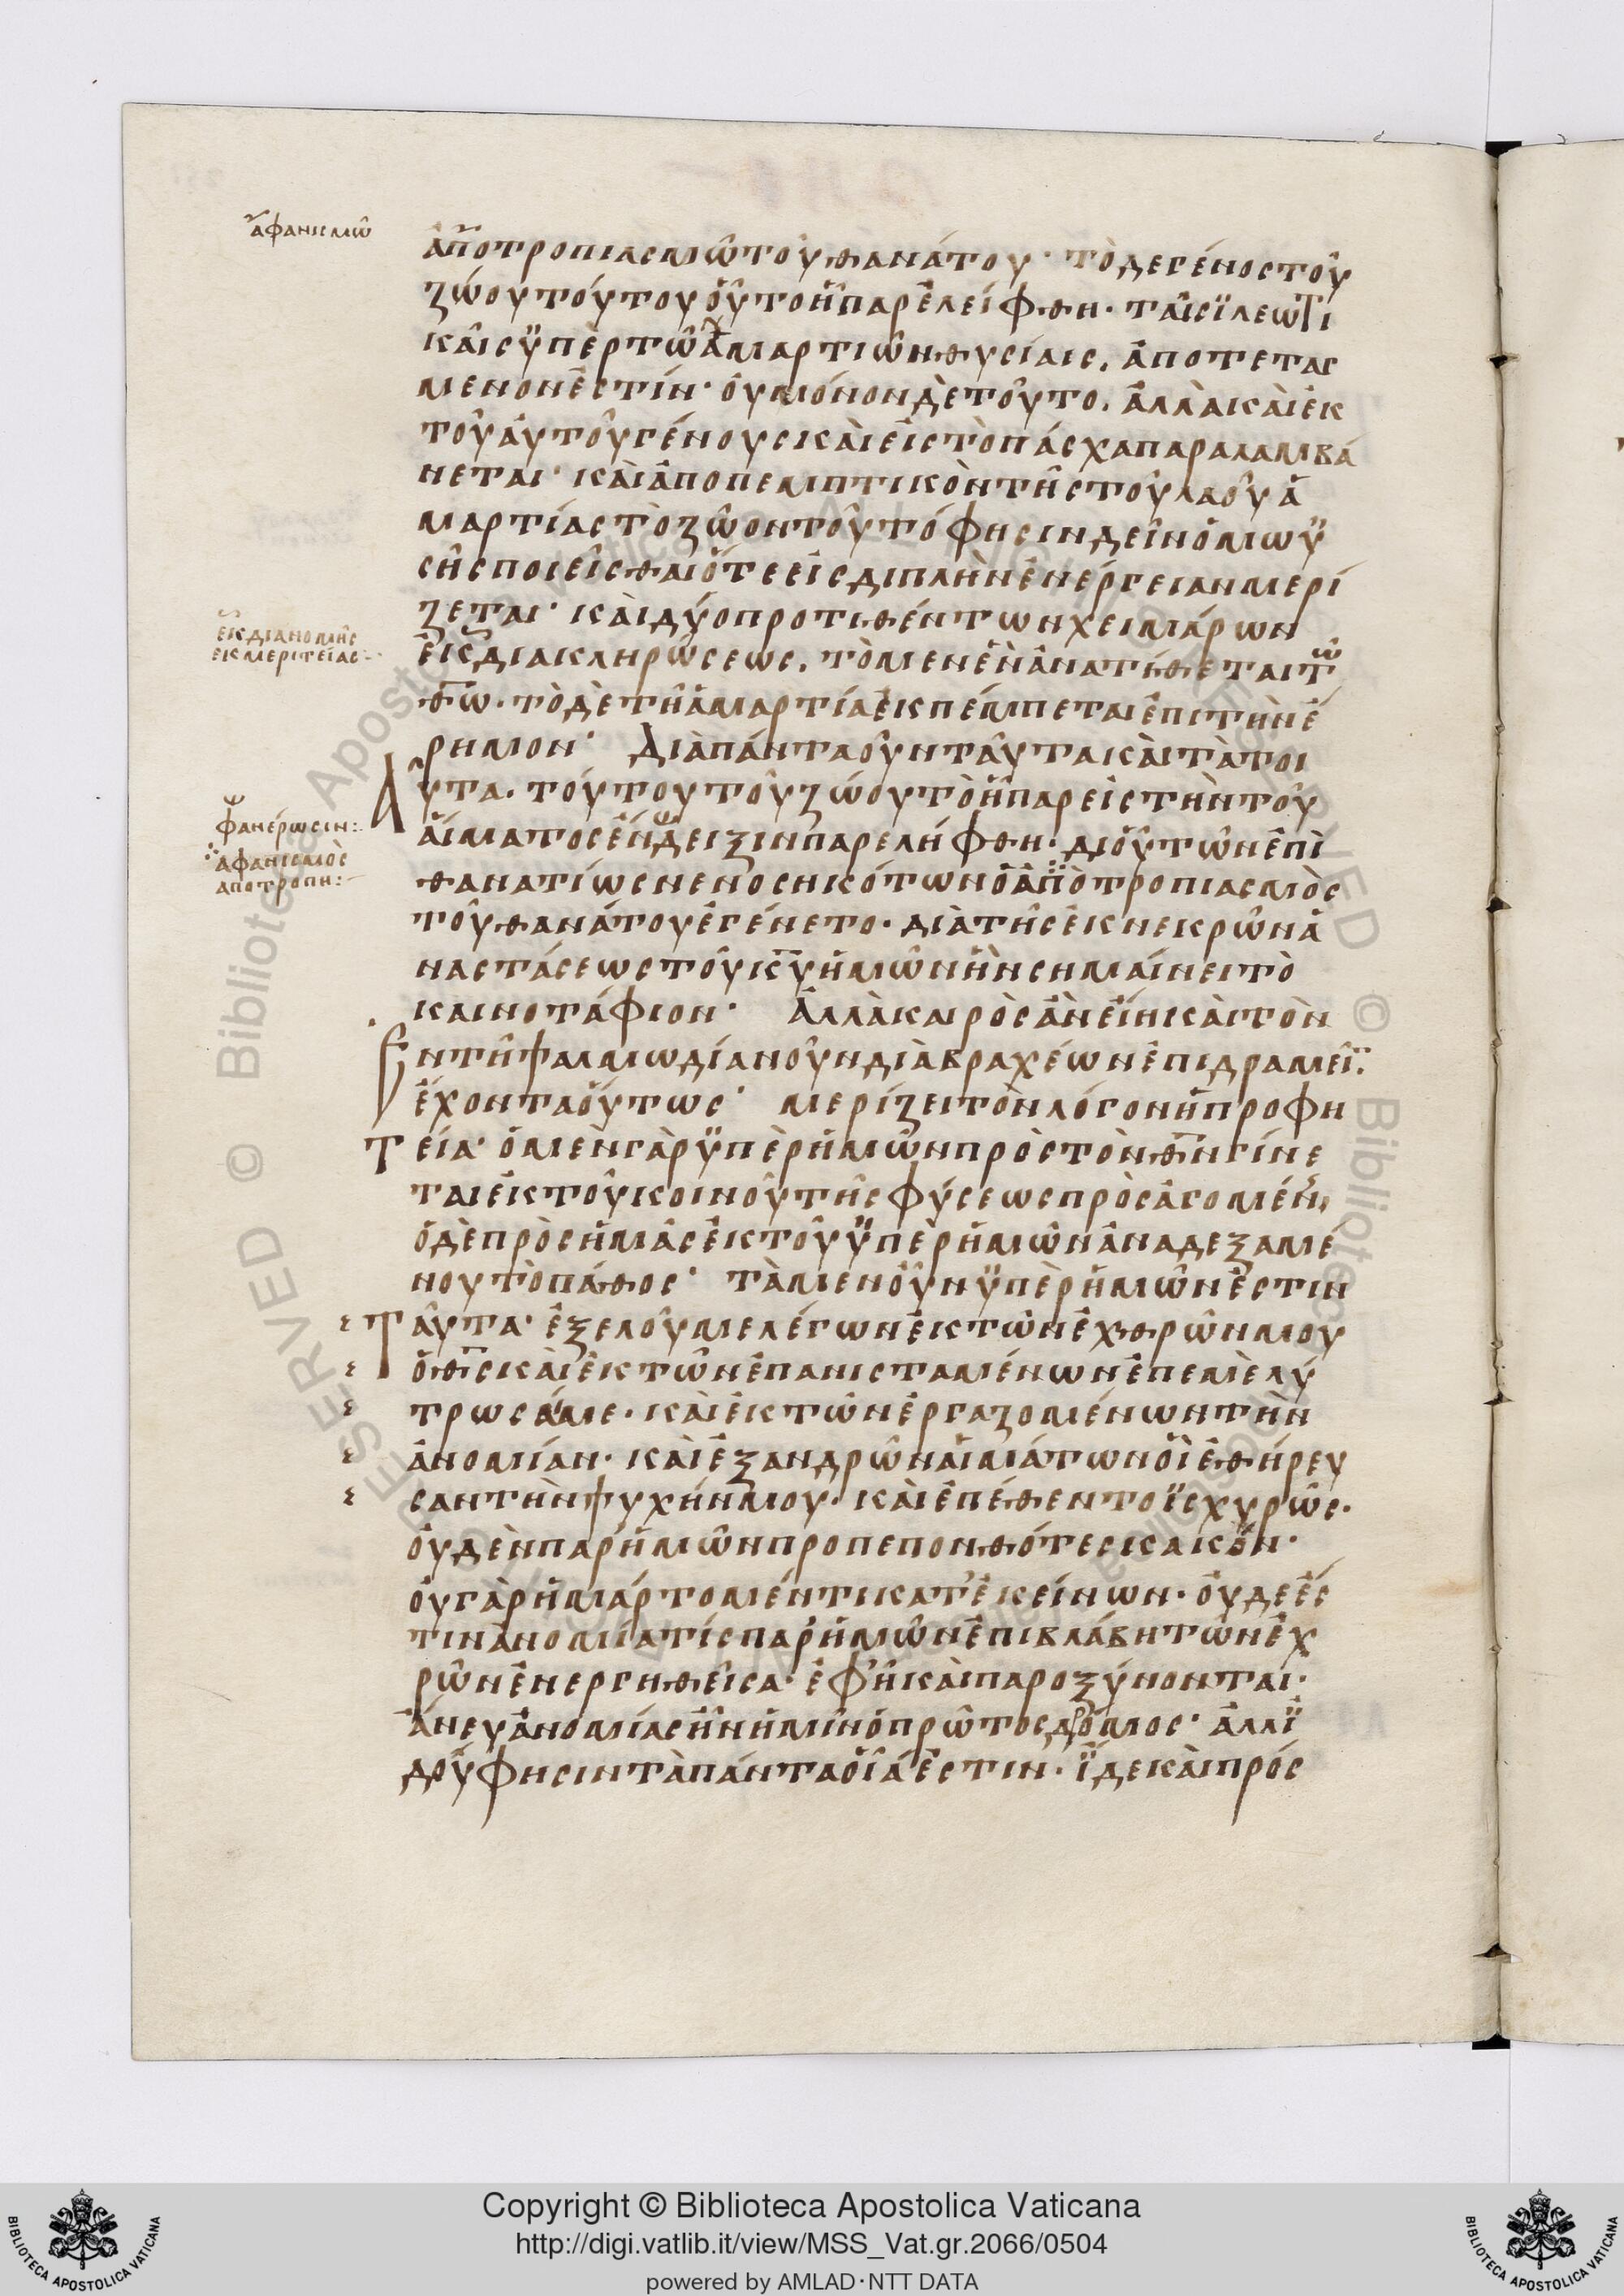 ἀφανισμῶ
ἀποτροπιασμῶ τοῦ θανάτου· τὸ δε γένος τοῦ
ζώου τούτου ὅυτοι ἦ παρελείφθη· ταῖς ϊλεωτι
καῖς ϋπὲρ τῶ ἁμαρτιῶν θυσίαις, ἀποτετας
μενον ἐστίν· ὀυ μόνον δὲ τοῦτο, ἀλλὰ καὶ ἐκ
τοῦ ἀυτοῦ γένους καὶ εἰς τὸ πάσχα παραλαμβά
νεται· καὶ ἀποπεμπτικὸν τῆς τοῦ λαοῦ ἁ
μαρτίας τὸ ζῶον τοῦτό φησιν δεῖν ὁ μωϋ
σῆς ποιεῖσθαι ὅτε εἰς διπλὴν ἐνέργειαν μερί
ζεται· καὶ δύο προτιθέντων χειμάρων
ἐκ διανομῆς
ἐκ μεριτείας
ἐκ διακληρώσεως, τὸ μεν ἓν ἀνατίθεται τῶ
θω· τὸ δὲ τῆ ἁμαρτία ἐκπέμπεται ἐπι τὴν ἔ
ρημον· Διὰ πάντα οὖν ταῦτα καὶ τὰ τοι
αῦτα. τούτου τοῦ ζώου τὸ ἧπαρ εἰς τὴν τοῦ
φανέρωσιν:
αἵματος ἔνδειξιν παρελήφθη· δι οὗ τῶν ἐπὶ
ἀφανισμὸς
αποτροπη:
θανατίως νενοσηκότων ὁ ἀποτροπιασμὸς
τοῦ θανάτου ἐγένετο· διὰ τῆς ἐκ νεκρῶν ἀ
ναστάσεως τοῦ κυ ἡμῶν ἣν σημαίνει τὸ
καινοτάφιον· Ἀλλὰ καιρὸς ἂν εἴη καὶ τὸν
ἐν τῆ ψαλμωδία νοῦν διὰ βραχέων ἐπιδραμεῖ
ἔχοντα οὕτως· μερίζει τὸν λόγον ἡ προφη
τεία· ὁ μὲν γὰρ ϋπὲρ ἡμῶν πρὸς τὸν θν γίνε
ται ἐκ τοῦ κοινοῦ τῆς φύσεως πρὸσἀγομέν,
ὁ δὲ πρὸς ἡμᾶς ἐκ τοῦ ϋπὲρ ἡμῶν ἀναδεξαμέ
νου τὸ πάθος· τὰ μεν οὖν ϋπὲρ ἡμῶν ἐστιν
ταῦτα· ἐξελοῦ με λέγων ἐκ τῶν ἐχθρῶν μου
ὁ θς καὶ ἐκ τῶν ἐπανισταμένων ἐπ εμὲ λύ
τρωσαί με· καὶ ἐκ τῶν ἐργαζομένων τὴν
ἀνομίαν· καὶ ἐξ ανδρῶν αἱμάτων ὅι ἐθήρευ
σαν τὴν ψυχήν μου· καὶ ἐπέθεντο ϊσχυρῶς·
ὀυδὲν παρ ἡμῶν προπεπονθότες κακὸν·
ὀυ γὰρ ἡμάρτομέν τι κατ ἐκείνων· ὀυδε ἔσ
τιν ἀνομία τίς παρ ἡμῶν ἐπι βλάβη τῶν ἐχ
ρῶν ἐνεργηθεῖσα· ἐφ ἧ καὶ παροξύνονται·
ἄνευ ἀνομίας ἦν ἡμῖν ὁ πρῶτος δρόμος· ἀλλ ϊ
δου φησιν τὰ πάντα οἷά ἐστιν· ϊδε καὶ πρὸς
Copyright © Biblioteca Apostolica Vaticana
http://digi.vatlib.it/view/MSS_Vat.gr.2066/0504
powered by AMLAD·NTT DATA
BIBLIOTECA APOSTOLICA VATICANA
BIBLIOTECA APOSTOLICA VATICANA